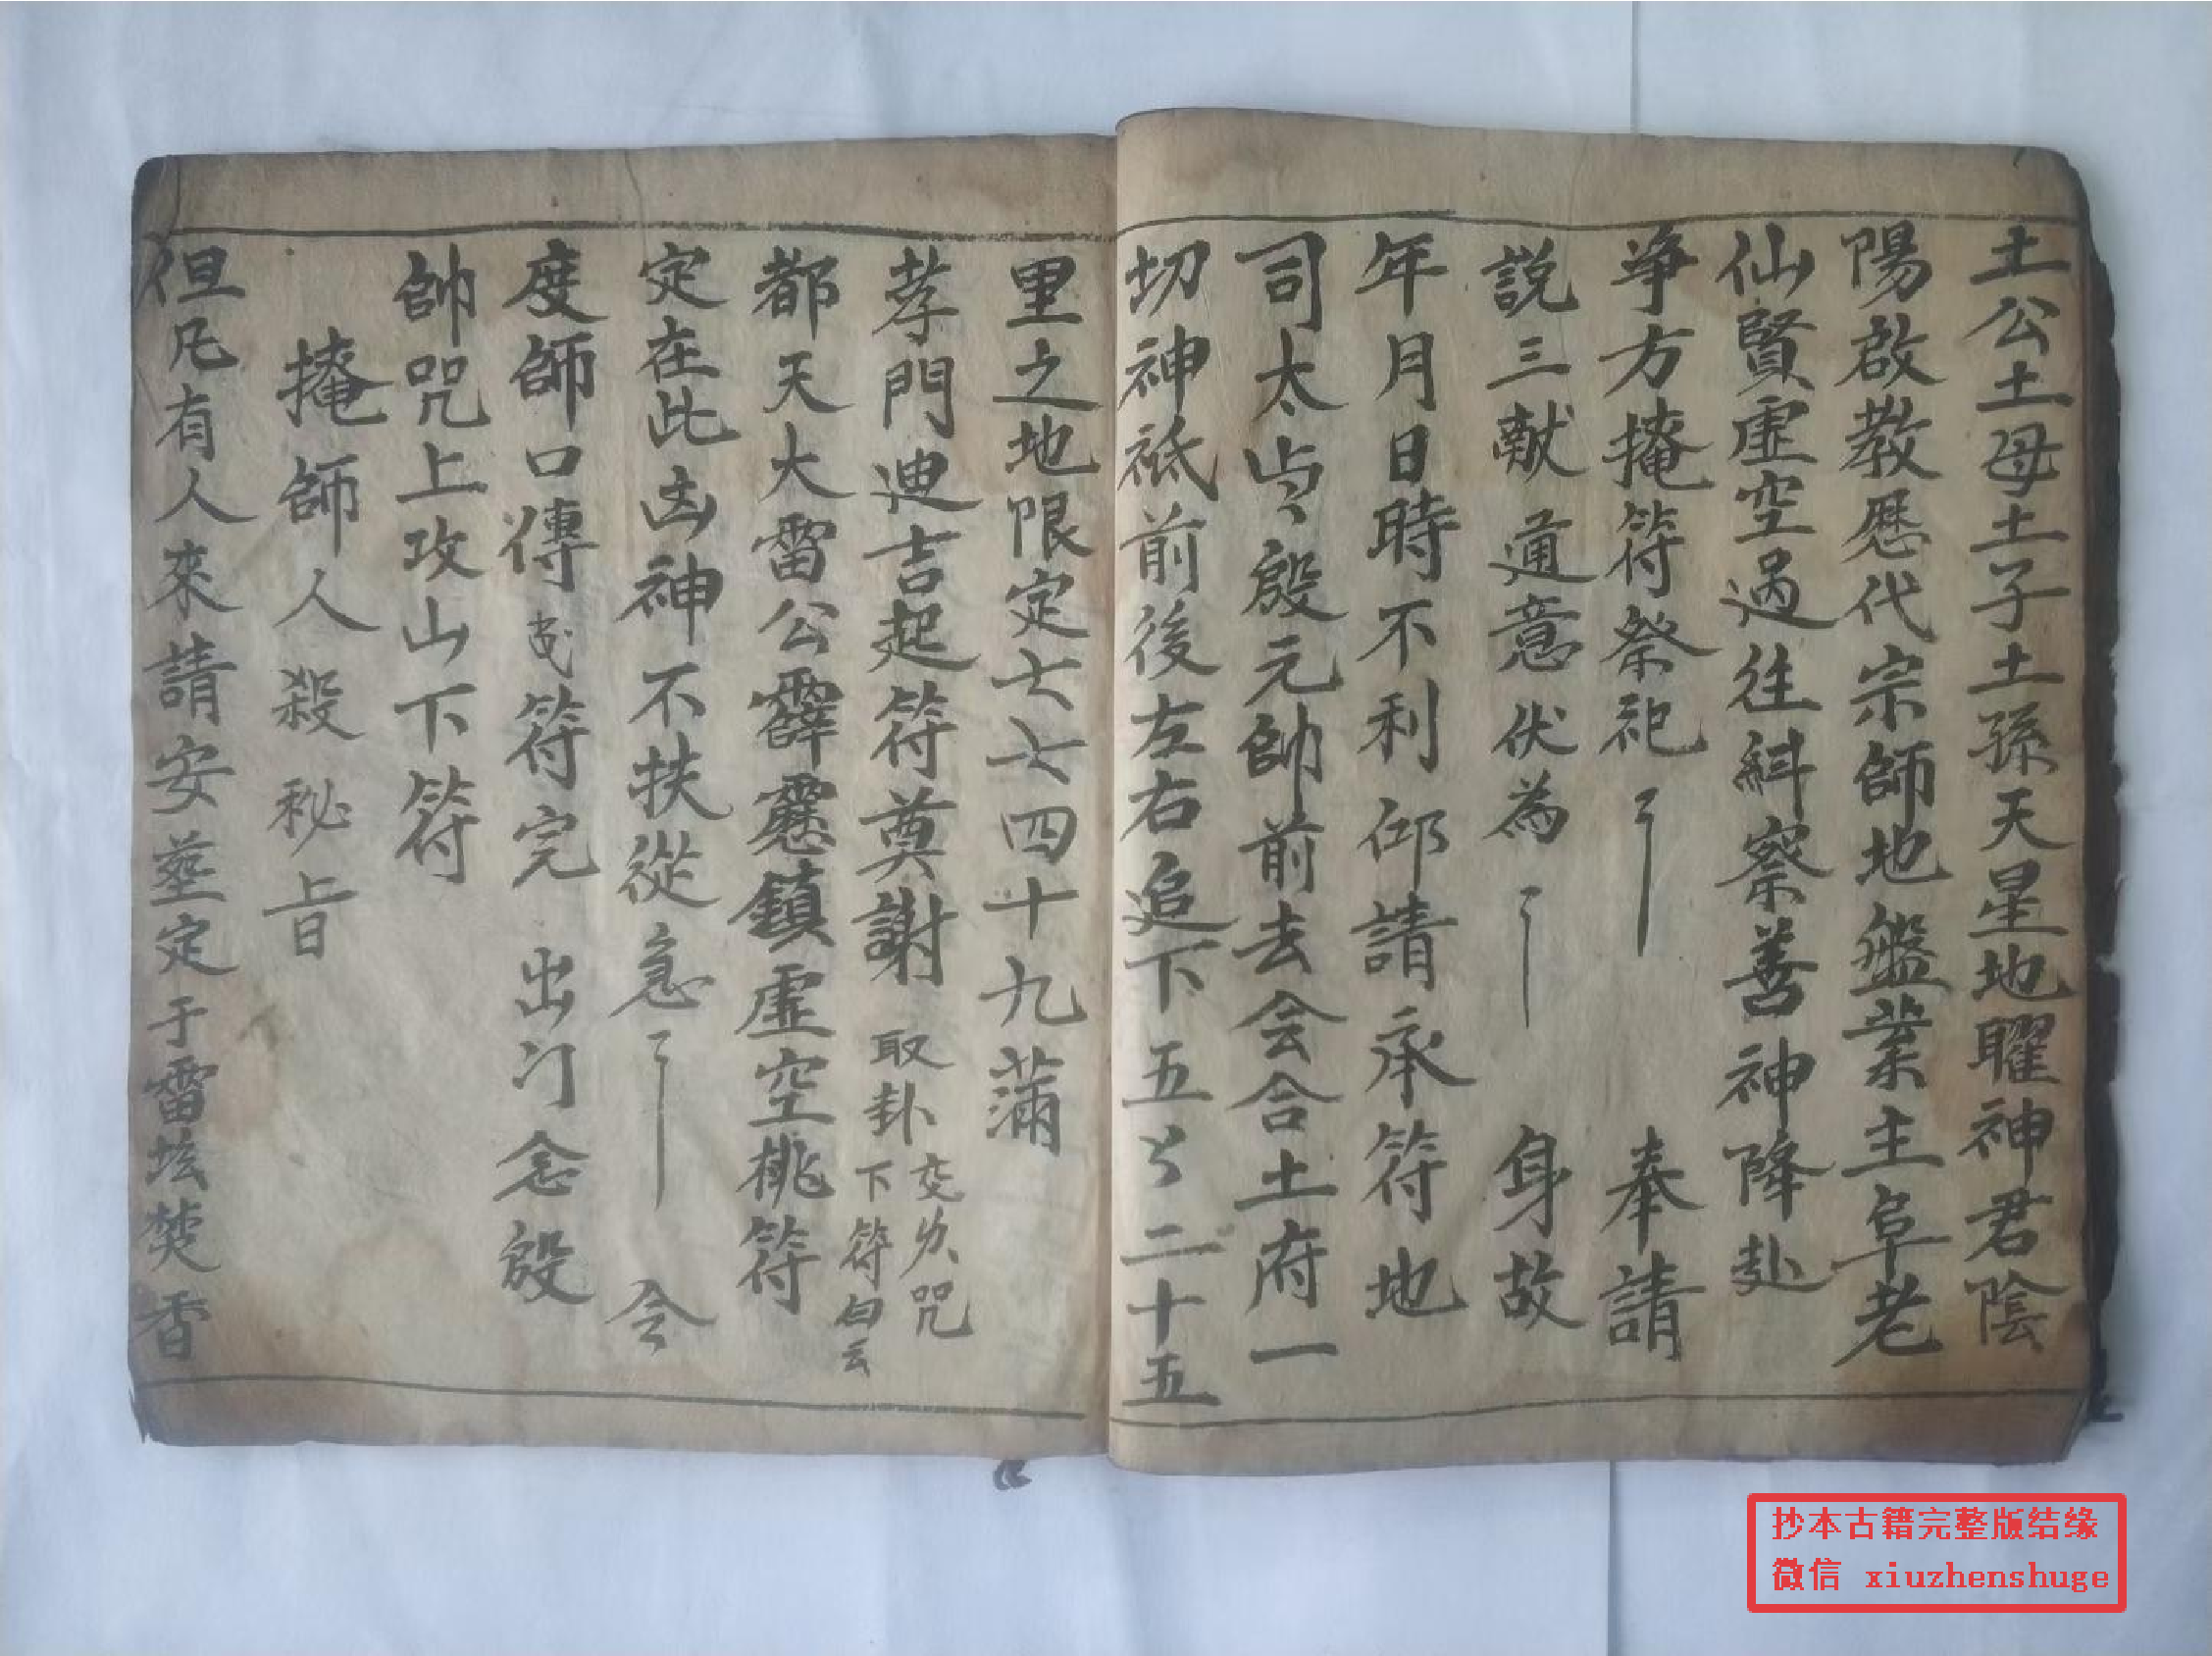 土公土母土子土孫天星地曜神君陰
陽啟教歷代宗師地盤業主阜老
仙賢虛空過往糾察善神降赴
爭方掩符祭祀 奉請
説三献通意伏為 身故
年月日時不利仰請承符地
司太歲殷元帥前去会合土府一
切神祇前後左右追下五〻二十五
里之地限定七七四十九滿
孝門迪吉起符奠謝 取卦
交 咒
下符白云
都天大雷公霹靂鎮虛空桃符
定在此凶神不扶從急 令
度師口傳 符完 出门念殷
帥咒上攻山下符
掩師人殺秘旨
但凡有人來請安塟定于雷坛焚香
抄本古籍完整版结缘
微信 xiuzhenshuge